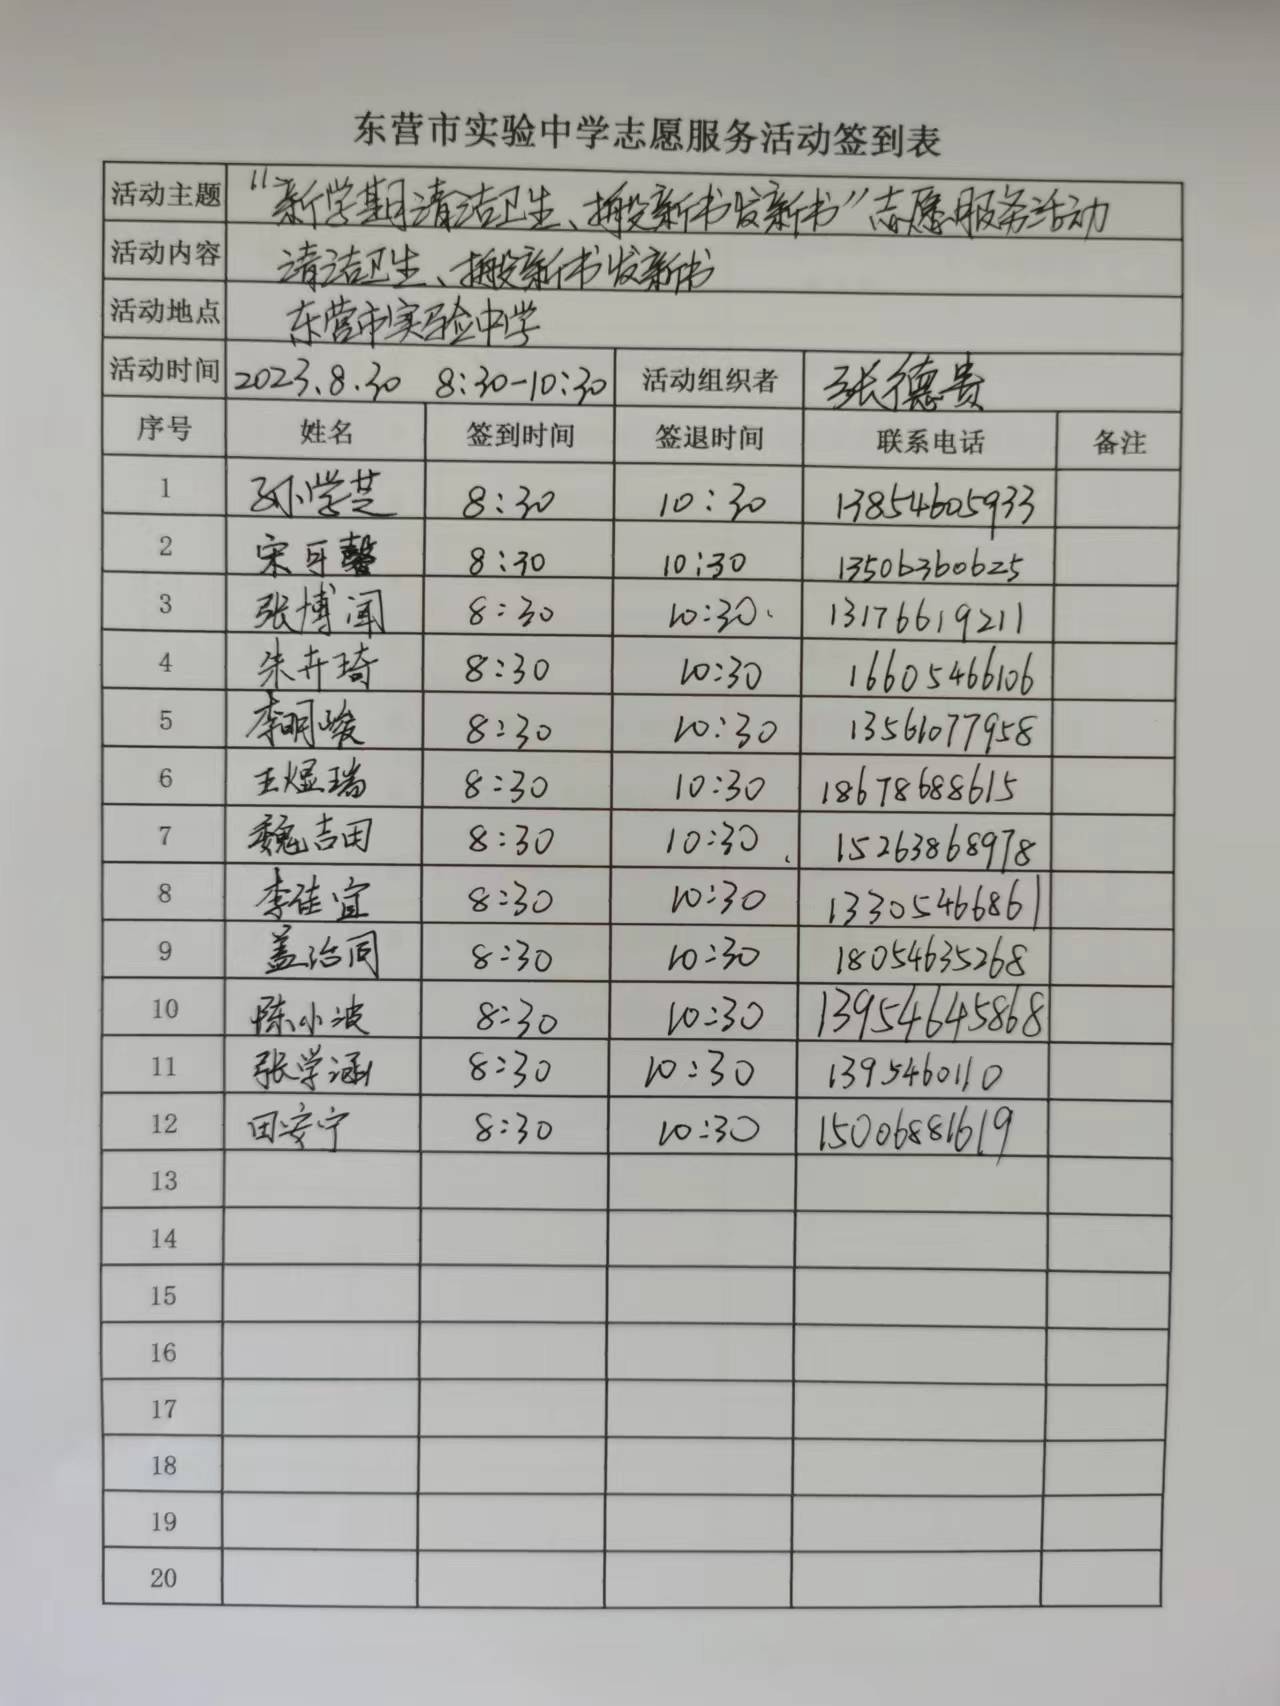 东营市实验中学志愿服务活动签到表
活动主题 "新学期清洁卫生、搬新书发新书"志愿服务活动
活动内容 清洁卫生、搬新书发新书
活动地点 东营市实验中学
活动时间 2023.8.30 8:30-10:30 活动组织者 张德贵
序号 姓名 签到时间 签退时间 联系电话 备注
1 孙学芝 8:30 10:30 13854605933
2 宋可馨 8:30 10:30 13506360625
3 张博闻 8:30 10:30 13176619211
4 朱卉琦 8:30 10:30 16605466106
5 李明峻 8:30 10:30 13561077958
6 王煜瑞 8:30 10:30 18678688615
7 魏吉田 8:30 10:30 15263868978
8 李佳宜 8:30 10:30 13305466861
9 盖治同 8:30 10:30 18054635268
10 陈小波 8:30 10:30 13954645868
11 张学涵 8:30 10:30 1395460110
12 田安宁 8:30 10:30 15006881619
13
14
15
16
17
18
19
20